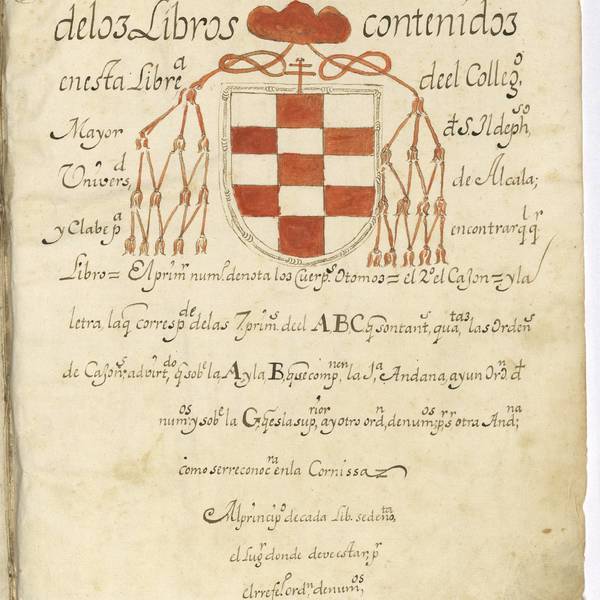 delos Libros contenidos
en esta Libreᵃ deel Collegᵒ,
Mayor đ S. Ildephˢᵒ,
Univers,ᵈ de Alcala;
y Clabe pᵃ encontrar qˡqʳ
Libro = El primʳ numº. denota los Cuerpˢ. Otomos = el 2º. el Cajon = y la
letra, la q̃ correspᵈᵉ de las 7 primˢ. deel A, B, C q̃ son tantˢ, quaᵗᵃˢ, las Ordenˢ
de Cajonˢ. advirᵗᵈᵒ, q̃ sobᵉ la A y la B, q̃ se compⁿᵉⁿ, la 1,ᵃ Andana, ay un Ordⁿ. đ
numᵒˢ. y sobᵉ la G, q̃ es la supʳⁱᵒʳ, ay otro ordⁿ, de numᵒˢ; pʳ ser otra Andⁿᵃ;
como se rreconocʳᵃ en la Cornissa
Al principº. de cada Lib. se denᵗᵃ,
el Lugʳ. donde deve estar, pʳ
el rrefeº. ordⁿ. de numᵒˢ,